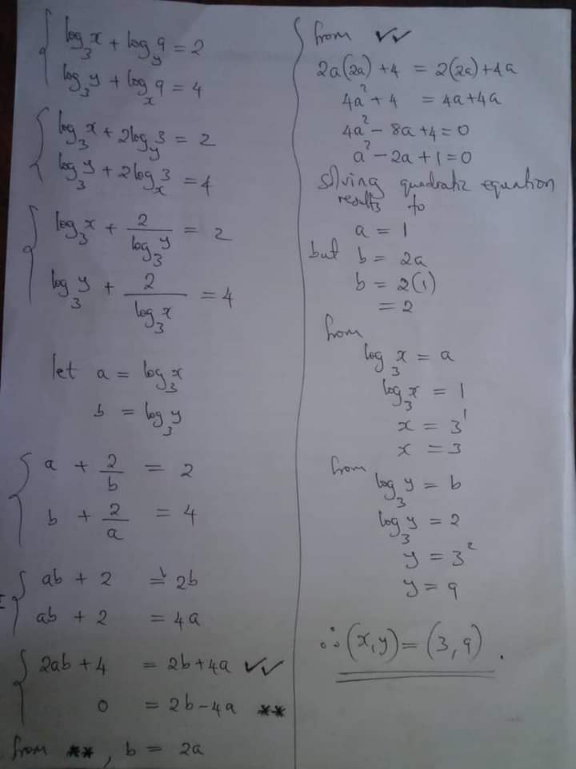 log₃x + log_y 9 = 2
log₃y + log_x 9 = 4
log₃x + 2log_y 3 = 2
log₃y + 2log_x 3 = 4
log₃x + 2/log₃y = 2
log₃y + 2/log₃x = 4
let a = log₃x
b = log₃y
a + 2/b = 2
b + 2/a = 4
ab + 2 = 2b
ab + 2 = 4a
2ab + 4 = 2b + 4a ✓✓
0 = 2b - 4a **
from **, b = 2a
from ✓✓
2a(2a) + 4 = 2(2a) + 4a
4a² + 4 = 4a + 4a
4a² - 8a + 4 = 0
a² - 2a + 1 = 0
solving quadratic equation
results to
a = 1
but b = 2a
b = 2(1)
= 2
from
log₃x = a
log₃x = 1
x = 3¹
x = 3
from
log₃y = b
log₃y = 2
y = 3²
y = 9
∴ (x,y) = (3,9).